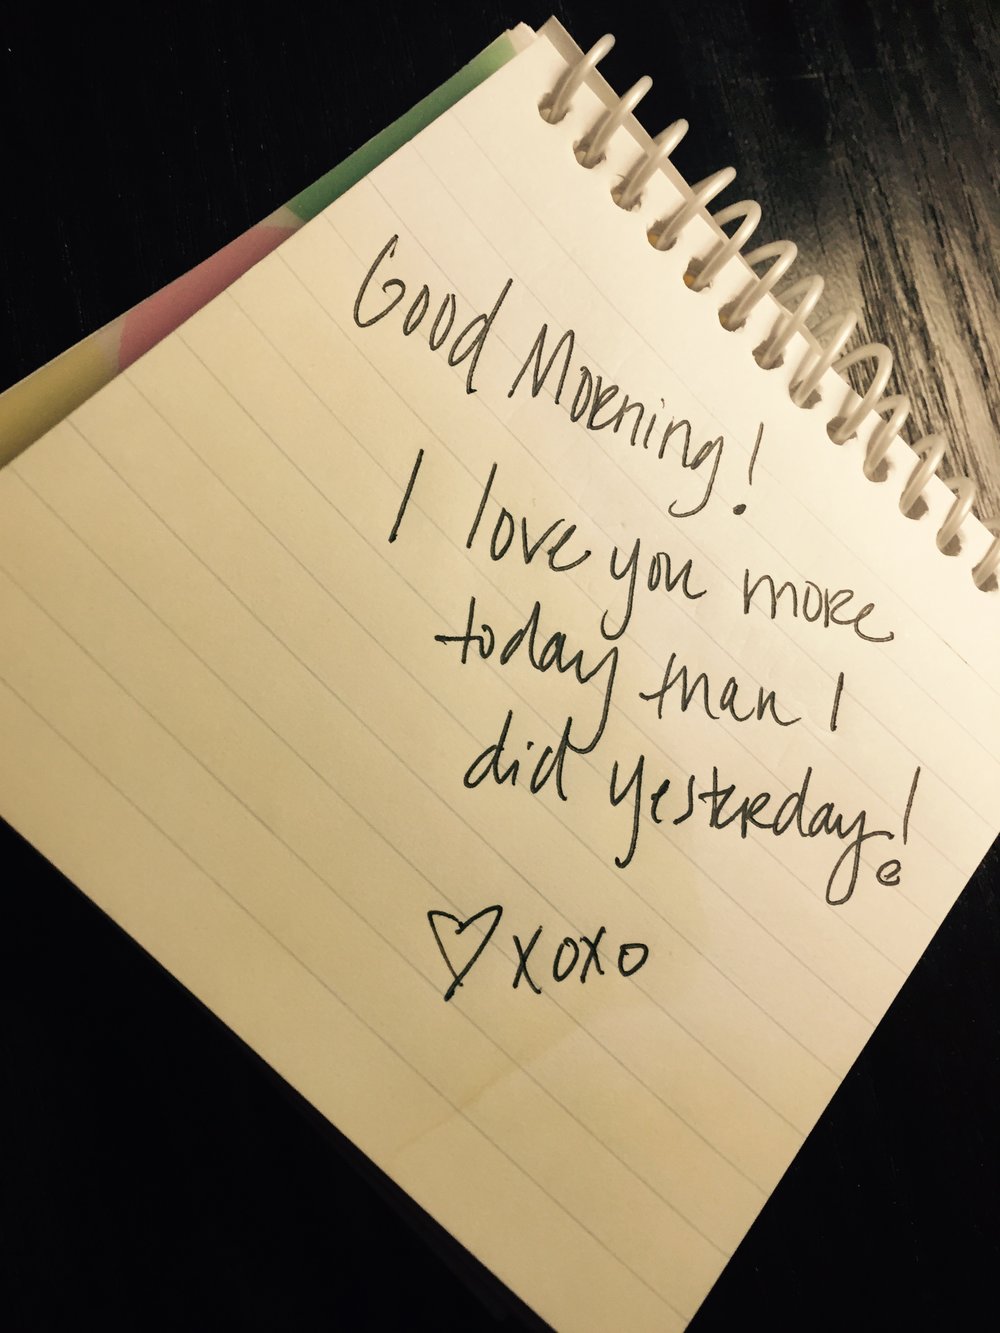 Good Morning!
I love you more
today than I
did yesterday!
♡xoxo